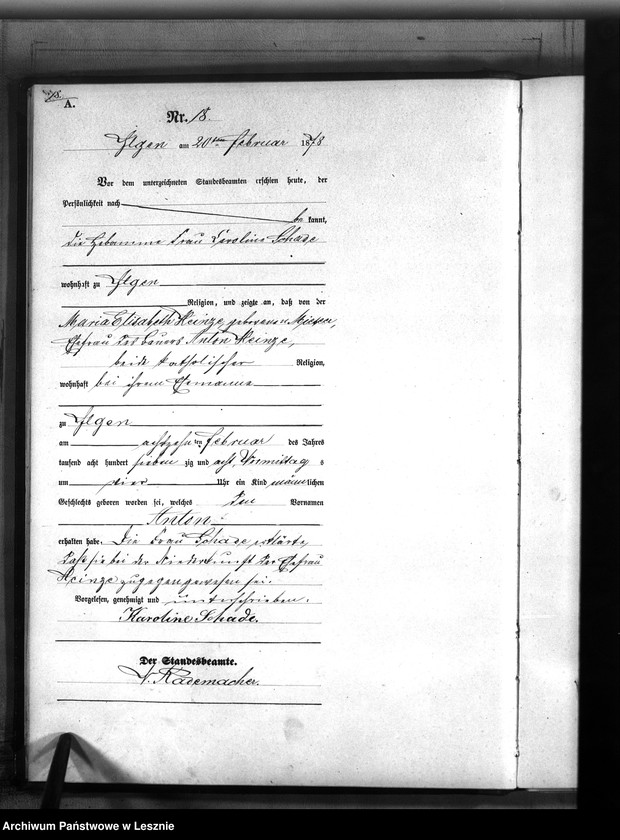 18.
A.
Nr. 18.
Ilgen am 20ten Februar 1878
Vor dem unterzeichneten Standesbeamten erschien heute, der
Persönlichkeit nach
be kannt,
die Hebamme Frau Caroline Schade
wohnhaft zu Ilgen
Religion, und zeigte an, daß von der
Maria Elisabeth Heinze geborenen
Ehefrau des Bauers Anton Heinze,
beide katholischer Religion,
wohnhaft bei ihrem Ehemanne
zu Ilgen
am achtzehn ten Februar des Jahres
tausend acht hundert sieben zig und acht, Vormittag s
um vier Uhr ein Kind männlichen
Geschlechts geboren worden sei, welches den Vornamen
Anton
erhalten habe. Die Frau Schade erklärte,
daß sie bei der Niederkunft der Ehefrau
Heinze zugegen gewesen sei.
Vorgelesen, genehmigt und unterschrieben.
Karoline Schade.
Der Standesbeamte.
Rademacher.
Archiwum Państwowe w Lesznie